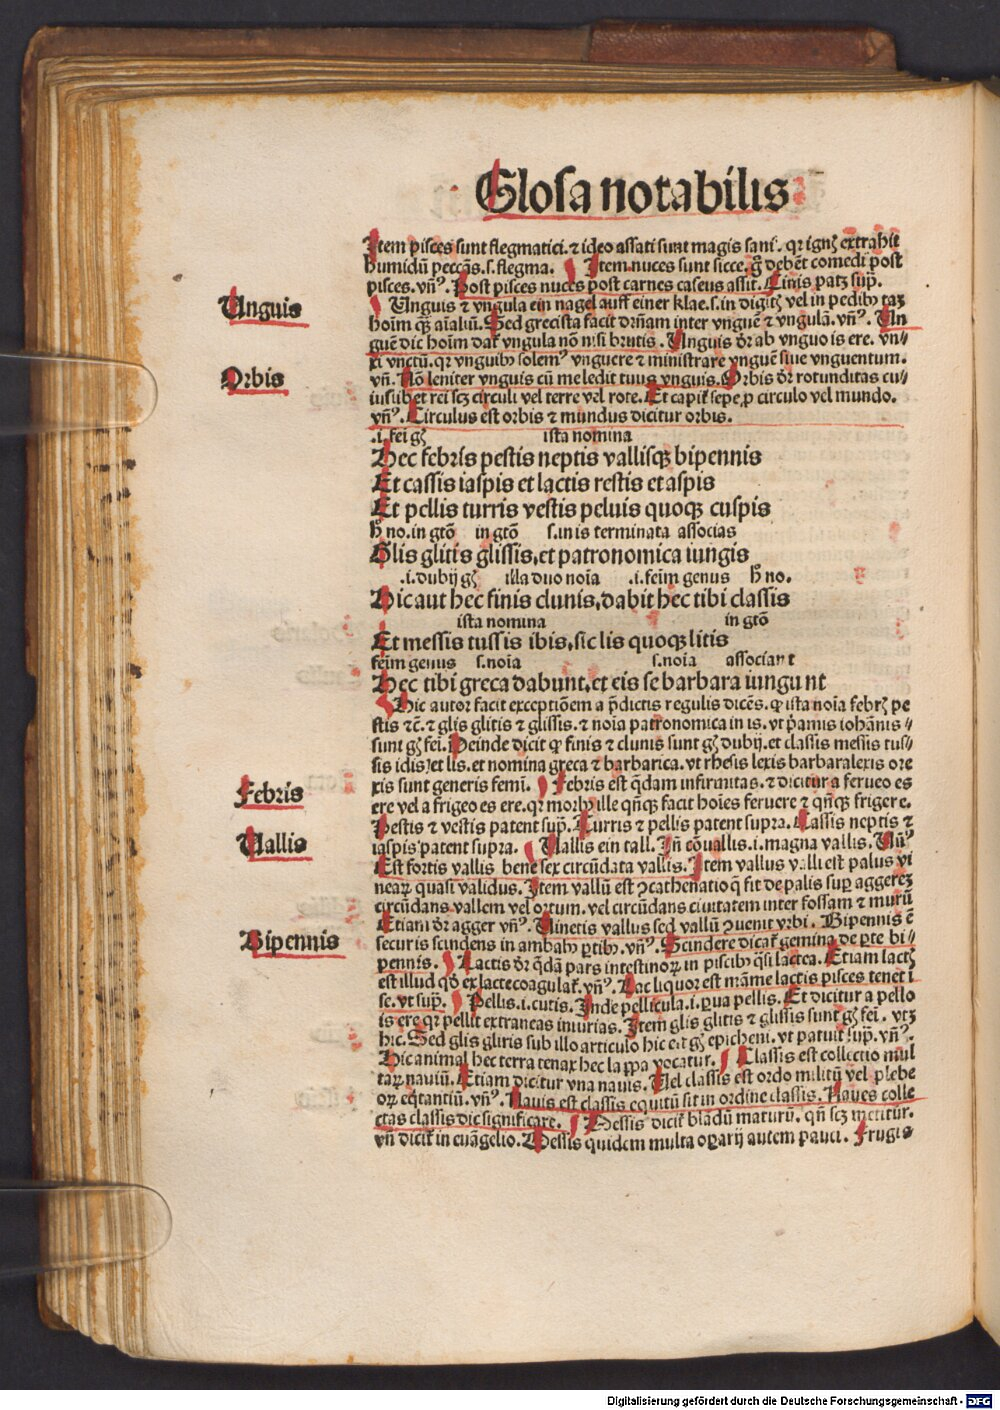 Glosa notabilis
Item pisces sunt flegmatici. ⁊ ideo assati sunt magis sani. qr ignꝫ extrahit
humidū peccās. s. flegma. Item nuces sunt sicce. ḡ debēt comedi post
pisces. vñ. Post pisces nuces post carnes caseus assit. Cinis patꝫ sup̄.
Unguis
Unguis ⁊ vngula ein nagel auff einer klae. s. in digitꝫ vel in pedibꝫ taꝫ
hoīm qꝫ aīaliū. Sed grecista facit dr̄nam inter vnguē ⁊ vngulā. vñ. Un
guē dic hoīm dat̄ vngula nō nisi brutis. Unguis dr̄ ab vnguo is ere. vn⸗
xi vnctū. qr vnguibꝫ solemꝰ vnguere ⁊ ministrare vnguē siue vnguentum.
Orbis
vñ. Nō leniter vnguis cū me ledit tuus vnguis. Orbis dr̄ rotunditas cu⸗
iuslibet rei scꝫ circuli vel terre vel rote. Et capit̄ sepe ꝓ circulo vel mundo.
vñ. Circulus est orbis ⁊ mundus dicitur orbis.
.i. fei gꝫ ista nomina
Hec febris pestis neptis vallisqꝫ bipennis
Et cassis iaspis et lactis restis et aspis
Et pellis turris vestis peluis quoqꝫ cuspis
h̄ no. in gtō in gtō s. in is terminata associas
Glis glitis glissis, et patronomica iungis
.i. dubij gꝫ illa duo noīa .i. feīm genus h̄ no.
Hic aut hec finis clunis, dabit hec tibi classis
ista nomina in gtō
Et messis tussis ibis, sic lis quoqꝫ litis
feīm genus s. noīa s. noīa associant
Hec tibi greca dabunt, et eis se barbara iungunt
Hic autor facit exceptiōem a p̄dictis regulis dicēs. ꝙ ista noīa febrꝫ pe
stis ⁊c̄. ⁊ glis glitis ⁊ glissis. ⁊ noīa patronomica in is. vt p̄amis iohānis⸗
sunt gꝫ fei. Deinde dicit ꝙ finis ⁊ clunis sunt gꝫ dubij. et classis messis tus⸗
sis idis et lis. et nomina greca ⁊ barbarica. vt rhesis lexis barbaralexis ore
Febris
xis sunt generis femī. Febris est q̄dam infirmitas. ⁊ dicitur a ferueo es
ere vel a frigeo es ere. qr morbꝰ ille qn̄qꝫ facit hoīes feruere ⁊ qn̄qꝫ frigere.
Pestis ⁊ vestis patent sup̄. Turris ⁊ pellis patent supra. Cassis neptis ⁊
Uallis
iaspis patent supra. Uallis ein tall. Iñ cōuallis. i. magna vallis. Uñ
Est fortis vallis bene sex circūdata vallis. Item vallus valli est palus vi
nearꝫ quasi validus. Item vallū est ꝯcathenatio q̄ fit de palis sup̄ aggereꝫ
circūdans vallem vel ortum. vel circūdans ciuitatem inter fossam ⁊ murū
Etiam dr̄ agger vñ. Uinetis vallus sed vallū ꝯuenit vrbi. Bipennis ē
Bipennis
securis scindens in ambabꝰ ꝑtibꝰ. vñ. Scindere dicat̄ gemina de ꝑte bi⸗
pennis. Lactis dr̄ q̄dā pars intestinorꝫ in piscibꝰ q̄si lactea. Etiam lactꝫ
est illud qd̄ ex lacte coagulat̄. vñ. Lac liquor est māme lactis pisces tenet i
se. vt sup̄. Pellis. i. cutis. Inde pellicula. i. ꝑua pellis. Et dicitur a pello
is ere qr pellit extraneas iniurias. Item glis glitis ⁊ glissis sunt gꝫ fei. vtꝫ
hic. Sed glis gliris sub illo articulo hic est gꝫ epicheni. vt patuit sup̄. vñ.
Hic animal hec terra tenax hec lappa vocatur. Classis est collectio mul
tarꝫ nauiū. Etiam dicitur vna nauis. Uel classis est ordo militū vel plebe
orꝫ eq̄tantiū. vñ. Nauis est classis equitū sit in ordine classis. Naues colle
ctas classis dic significare. Messis dicit̄ bladū maturū. qn̄ scꝫ metitur.
vñ dicit̄ in euāgelio. Messis quidem multa oꝑarij autem pauci. Frugis
Digitalisierung gefördert durch die Deutsche Forschungsgemeinschaft - DFG